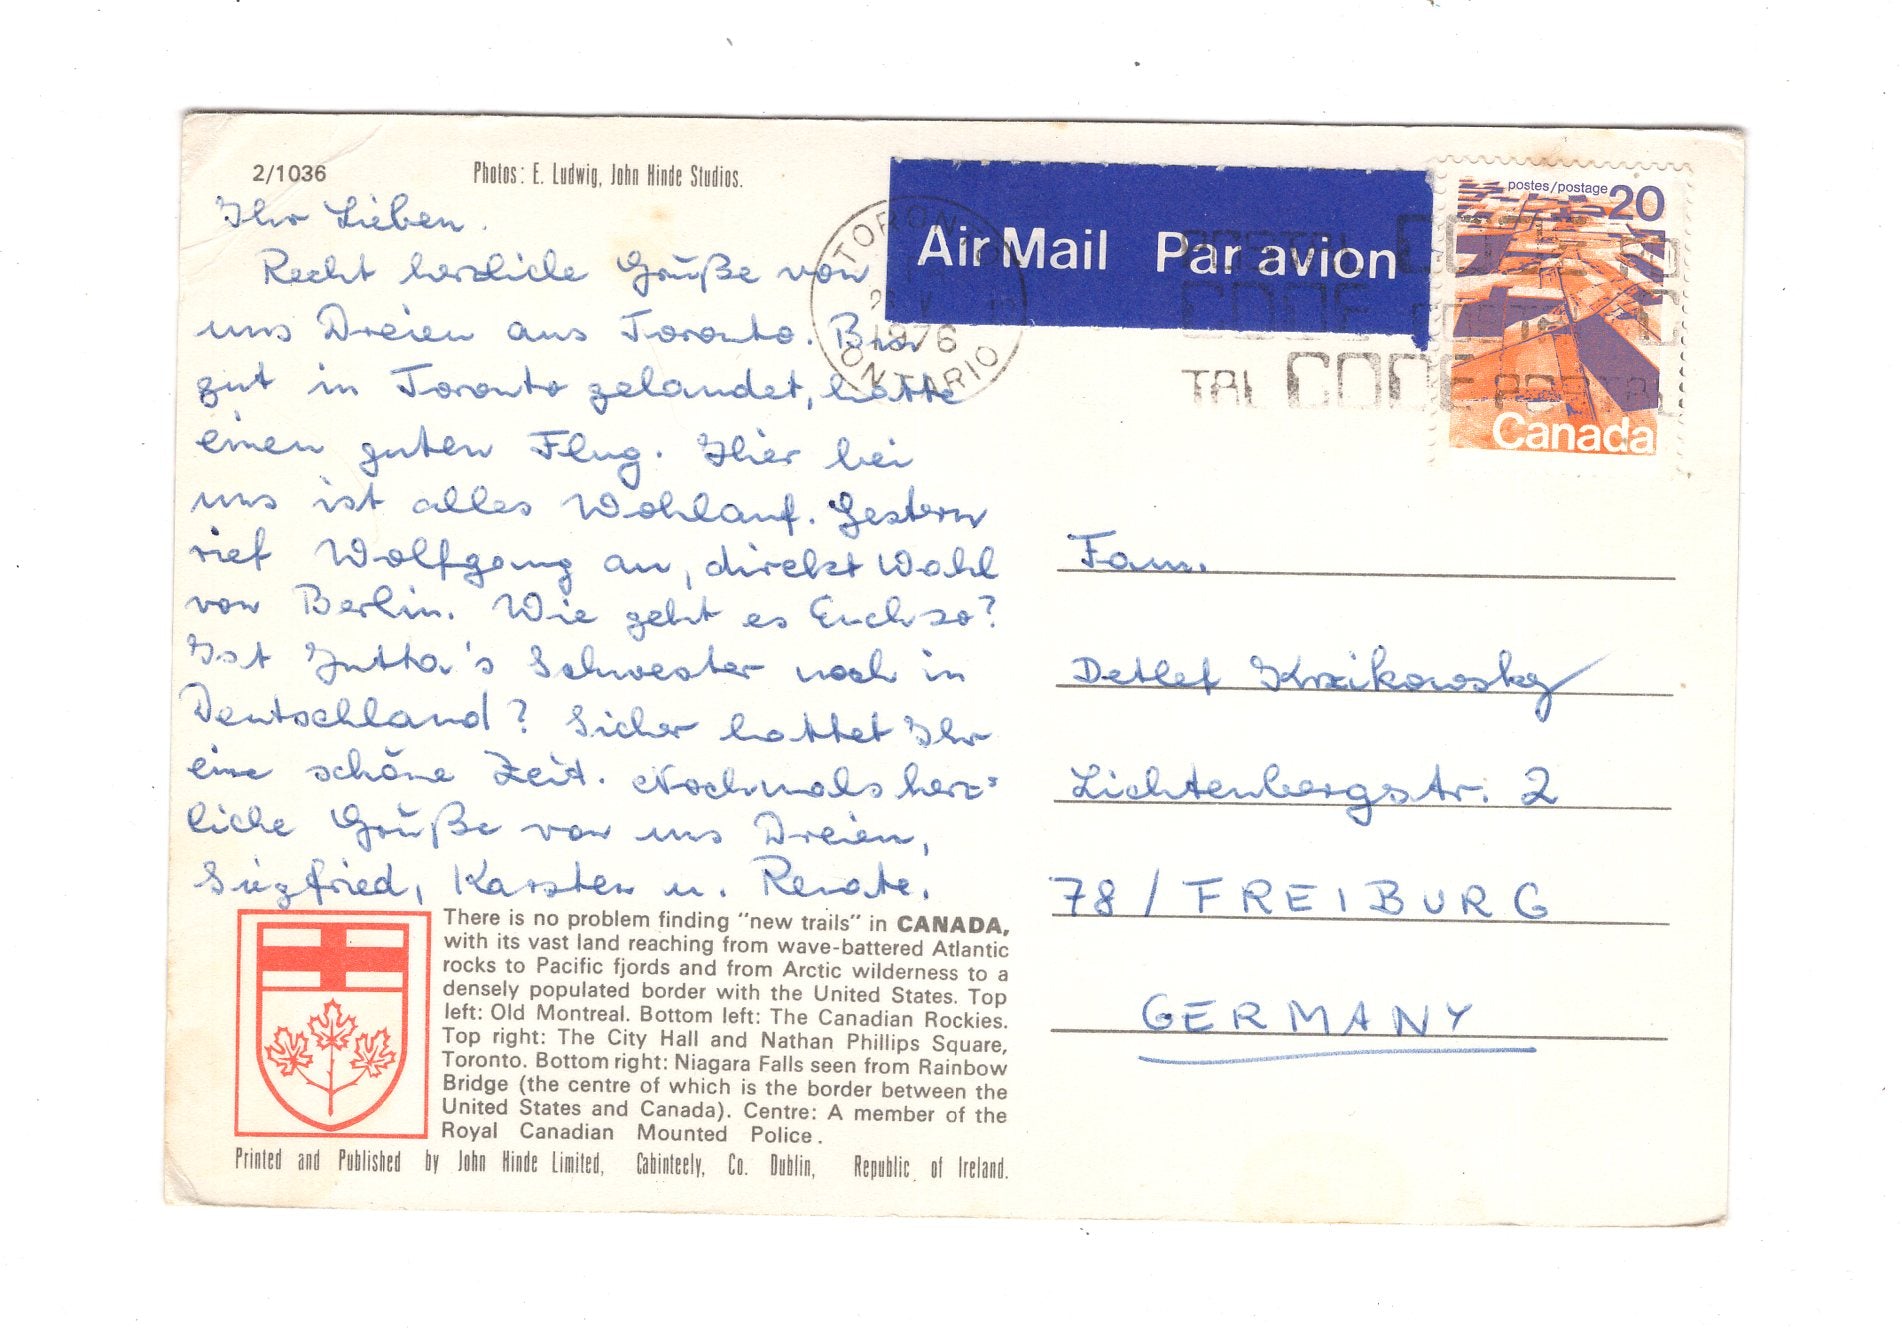 2/1036
Photos: E. Ludwig, John Hinde Studios.
Ihr Lieben.
Recht herzliche Grüße von
uns Dreien aus Toronto. Bin
gut in Toronto gelandet, hatte
einen guten Flug. Hier bei
uns ist alles Wohlauf. Gestern
rief Wolfgang an, direkt Wahl
von Berlin. Wie geht es Euch so?
Ist Jutta's Schwester noch in
Deutschland? Sicher hattet Ihr
eine schöne Zeit. Nochmals herz=
liche Grüße von uns Dreien,
Siegfried, Karsten u. Renate.
There is no problem finding "new trails" in CANADA,
with its vast land reaching from wave-battered Atlantic
rocks to Pacific fjords and from Arctic wilderness to a
densely populated border with the United States. Top
left: Old Montreal. Bottom left: The Canadian Rockies.
Top right: The City Hall and Nathan Phillips Square,
Toronto. Bottom right: Niagara Falls seen from Rainbow
Bridge (the centre of which is the border between the
United States and Canada). Centre: A member of the
Royal Canadian Mounted Police.
Printed and Published by John Hinde Limited, Cabinteely, Co. Dublin, Republic of Ireland.
Air Mail Par avion
TORONTO
1976
ONTARIO
POSTAL CODE PO
CODE POSTAL C
TAL CODE POSTAL
postes/postage 20
Canada
Fam.
Detlef Krzikowsky
Lichtenbergstr. 2
78 / FREIBURG
GERMANY